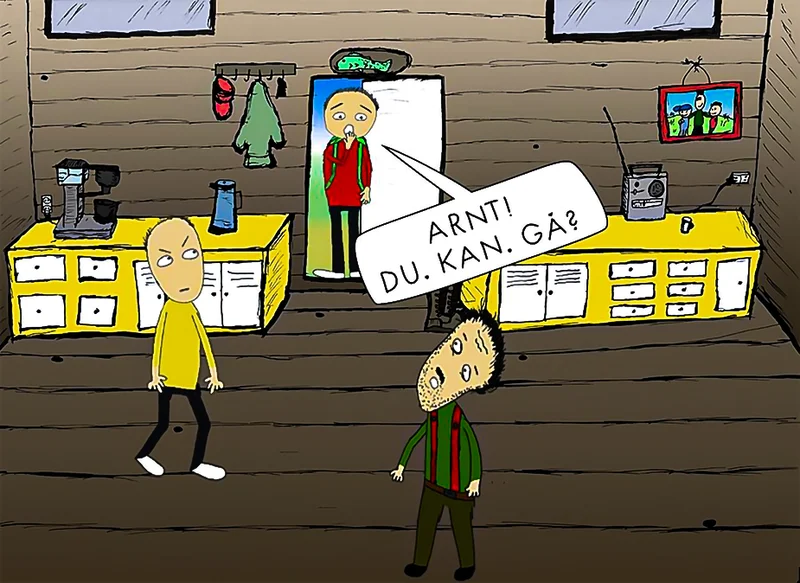 ARNT!
DU. KAN. GÅ?